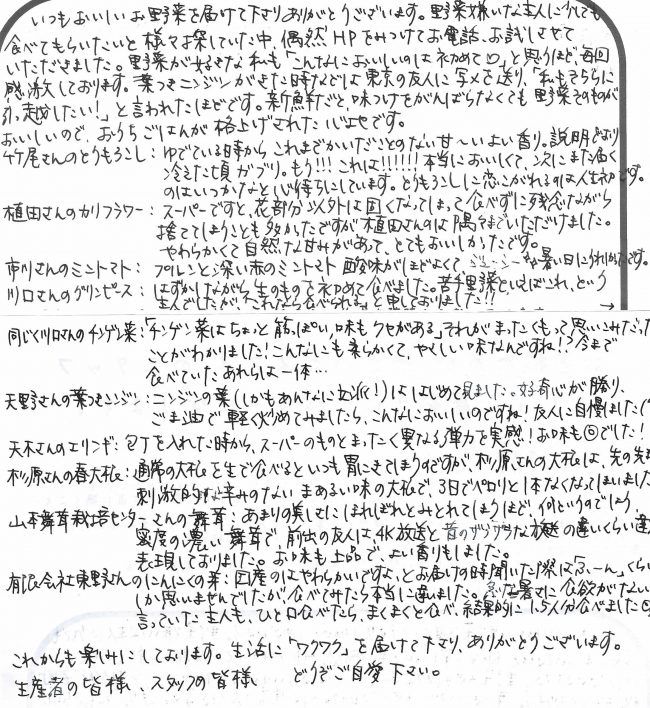 いつもおいしいお野菜を届けて下さりありがとうございます。野菜嫌いな主人に少しでも
食べてもらいたいと様々お探していた中、偶然HPをみつけてお電話、お試しさせて
いただきました。野菜が好きな私も「こんなにおいしいのは初めて♡」と思うほど、毎回
感激しております。葉つきニンジンがきた時などは東京の友人に写メを送り、「私もそちらに
引っ越したい!」と言われたほどです。新鮮だと、味つけをがんばらなくても野菜そのものが
おいしいので、おうちごはんが格上げされた心境です。
竹尾さんのとうもろこし:ゆでている時からこれまでかいだことのない甘〜いよい香り。説明どおり
冷えた頃ガブリ。もう!!!これは!!!!!!本当においしくて、次にまた届く
のはいつかなと心待ちにしています。とうもろこしに恋こがれるのは人生初です。
植田さんのカリフラワー:スーパーですと、花部分以外は固くなってしまって食べずに残念ながら
捨ててしまうことも多かったですが植田さんのは隅々までいただけました。
やわらかくて自然な甘みがあって、とてもおいしかったです。
市川さんのミニトマト:プルンと深い赤のミニトマト 酸味がほどよくてジューシーで暑い日にうれしかったです。
川口さんのグリンピース:はずかしながら生のものを初めて食べました。苦手野菜といえばこれ、という
主人でしたが、「これなら食べられる」と申しておりました!!
→
同じく川口さんのチンゲン菜:「チンゲン菜はちょっと筋っぽい、味もクセがある」それがまったくもって思いこみだった
ことがわかりました!こんなにも柔らかくて、やさしい味なんですね!?今まで
食べていたあれらは一体…
天野さんの葉つきニンジン:ニンジンの葉(しかもあんなに立派!)ははじめて見ました。好奇心が勝り、
ごま油で軽く炒めてみましたら、こんなにおいしいのですね!友人に自慢しました(
天木さんのエリンギ:包丁を入れた時から、スーパーのものとまったく異なる弾力を実感!お味も◎でした!
杉原さんの春大根:通常の大根を生で食べるといつも胃にきてしまうのですが、杉原さんの大根は、先の先
刺激的な辛みのないまあるい味の大根で、3日でペロリと1本なくなってしまいました
山本舞茸栽培センターさんの舞茸:あまりの美しさにほれぼれとみとれてしまうほど、何というのでしょう、
密度の濃い舞茸で、前出の友人は、4K放送と昔のザラザラな放送の違いくらい違
表現しておりました。お味も上品で、よい香りもしました。
有限会社東野さんのにんにくの芽:国産のはやわらかいですよ、とお届けの時聞いた際は「ふーん」くらい
しか思いませんでしたが、食べてみたら本当に違いました。急な暑さに食欲がないと
言っていた主人も、ひと口食べたら、まくまくと食べ、結果的に1.5人分食べました
これからも楽しみにしております。生活に「ワクワク」を届けて下さり、ありがとうございます。
生産者の皆様、スタッフの皆様 どうぞご自愛下さい。